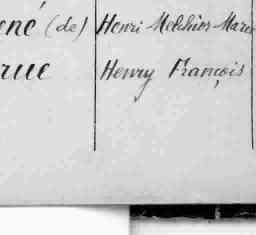 ené (de) Henri Melchior Marie
rue Henry François